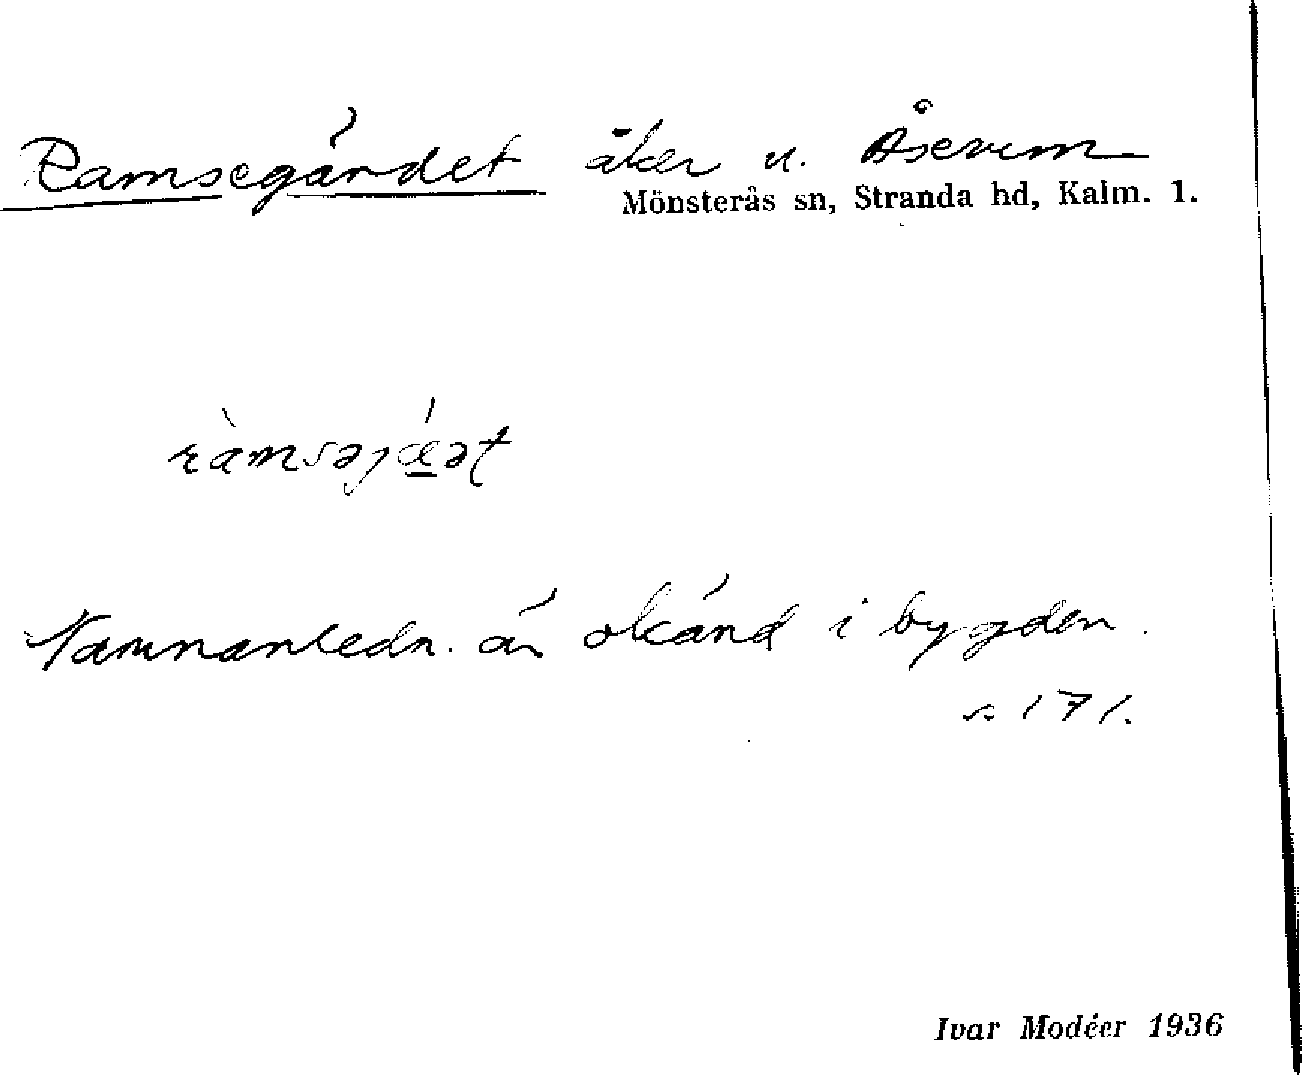 Ramsegärdet åker u. Åserum
Mönsterås sn, Stranda hd, Kalm. l.
ràmsəjǽət
Namnanledn. är okänd i bygden.
s. 171.
Ivar Modéer 1936